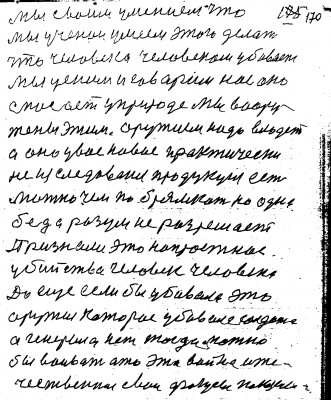 мы своим умением что 185 170
мы ученом умеем этого делат
что человека человеком убивает
мы ценим и говарим нас оно
спасает уприроде мы воору
жены этим. оружием надо владет
а оно увас новае практически
не иследовани продукция ест
можно чем побрямкат но одна
беда разум не разрешает
Признали это напростнас
убийства человек человека
Да еще если бы убивала это
оружия которае убивает солдата
а генерала нет тогда можно
бы воиват а то эта война оте-
чественная свои